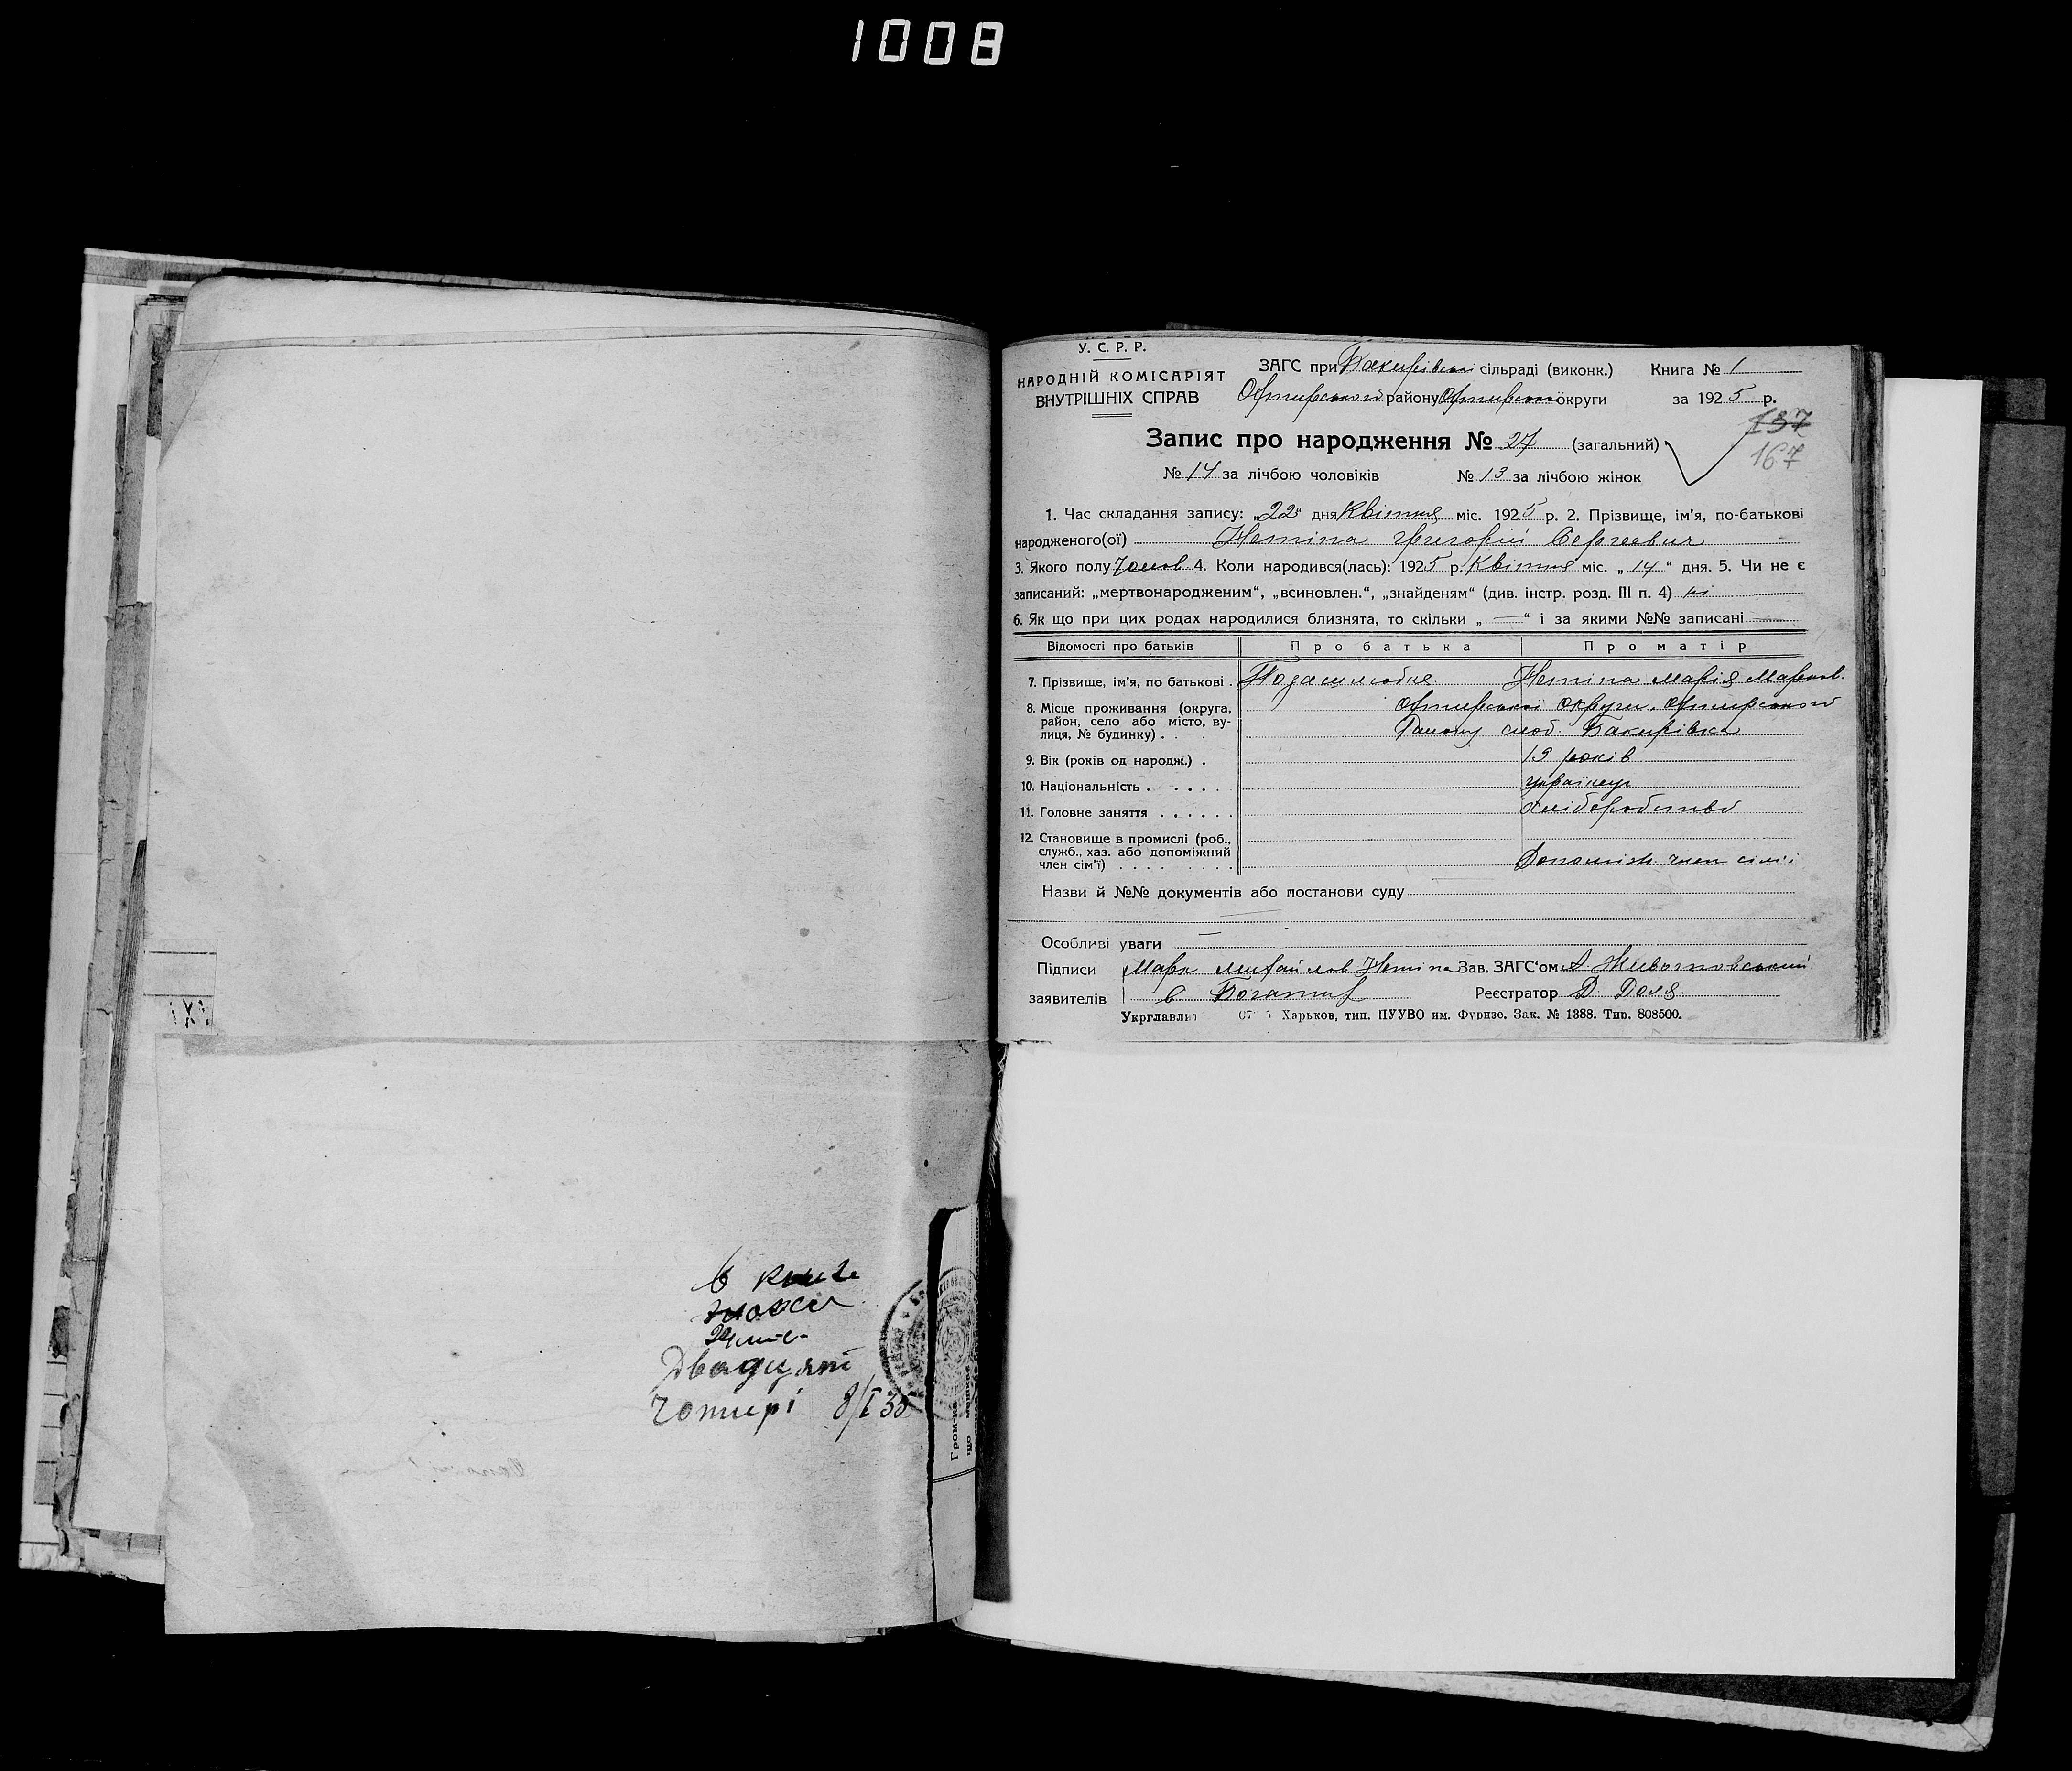 1008
В книге
24
Двадцят
Чотирі 8/I 35
У. С. Р. Р.
НАРОДНІЙ КОМІСАРІЯТ
ВНУТРІШНІХ СПРАВ
ЗАГС при Бакирівськ сільраді (виконк.) Книга № 1
Охтирського району Охтирської округи за 1925 р.
137
167
Запис про народження № 27 (загальний)
№ 14 за лічбою чоловіків № 13 за лічбою жінок
1. Час складання запису: „22“ дня Квітня міс. 1925 р. 2. Прізвище, ім'я, по-батькові
народженого(ої) Нетіпа Григорій Сергеевич
3. Якого полу Чолов. 4. Коли народився(лась): 1925 р. Квітня міс. „14“ дня. 5. Чи не є
записаний: „мертвонародженим“, „всиновлен.“, „знайденям“ (див. інстр. розд. III п. 4) ні
6. Як що при цих родах народилися близнята, то скільки „—“ і за якими №№ записані —
Відомості про батьків Про батька Про матір
7. Прізвище, ім'я, по батькові . Нетіпа Марія Марков.
8. Місце проживання (округа, Охтирської округи, Охтирського
район, село або місто, ву- Району слоб. Бакирівка
лиця, № будинку) . .
9. Вік (років од народж.) . 19 років
10. Національність . . . . . . українц
11. Головне заняття . . . . . . хліборобство
12. Становище в промислі (роб.,
служб., хаз. або допоміжний
член сім'ї) . . . . . . . . . Допоміж. член сімї
Назви й №№ документів або постанови суду
Особливі уваги —
Підписи Марк Михайлов Нетіпа Зав. ЗАГС'ом А. Животковський
заявителів Реєстратор Д Доля
Укрглавліт Харьков, тип. ПУУВО им. Фрунзе. Зак. № 1388. Тир. 808500.